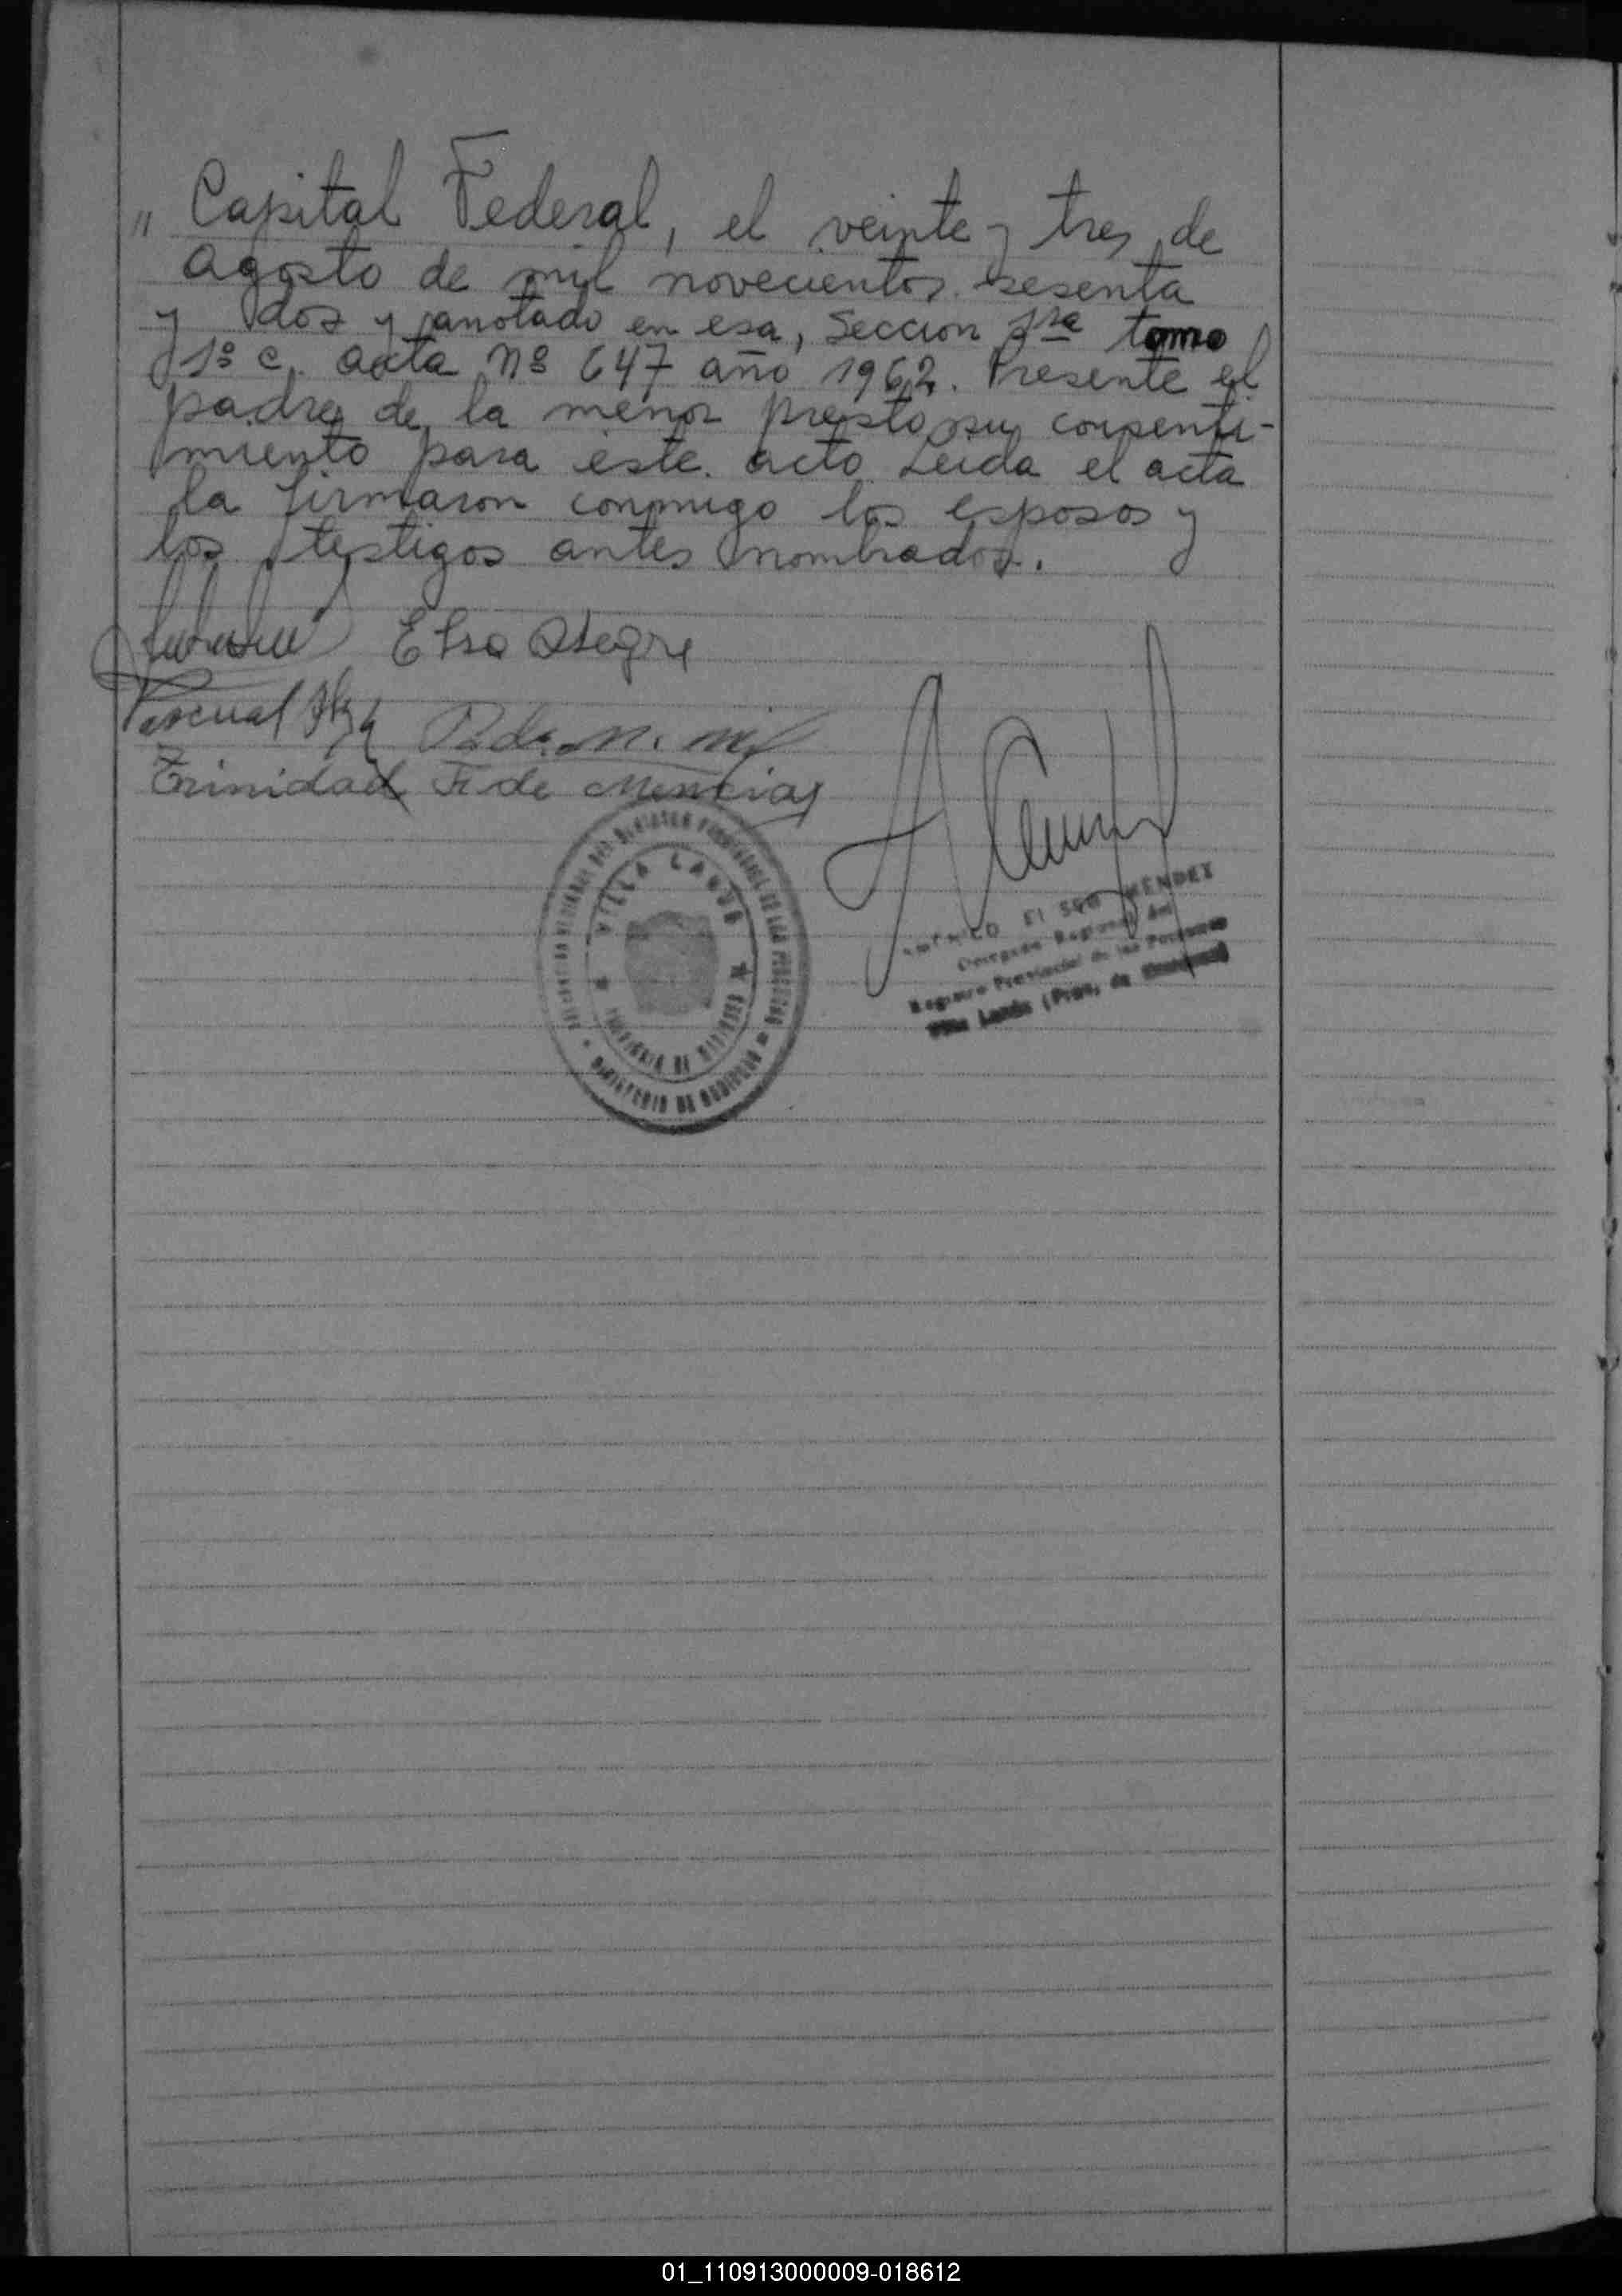 " Capital Federal, el veinte y tres de
agosto de mil novecientos sesenta
y dos y anotado en esa, Seccion 1ra tomo
1º C. acta nº 647 año 1962. Presente el
padre de la menor presto su consenti-
miento para este acto Leida el acta
la firmaron conmigo los esposos y
los testigos antes nombrados.
Elsa Alegre
Pascual
Trinidad F. de Mencias
VILLA LANUS
PROVINCIA DE MISIONES
MINISTERIO DE GOBIERNO
MENDEZ
Delegado Regional del
Registro Provincial de las Personas
Villa Lanús (Prov. de Misiones)
01_110913000009-018612